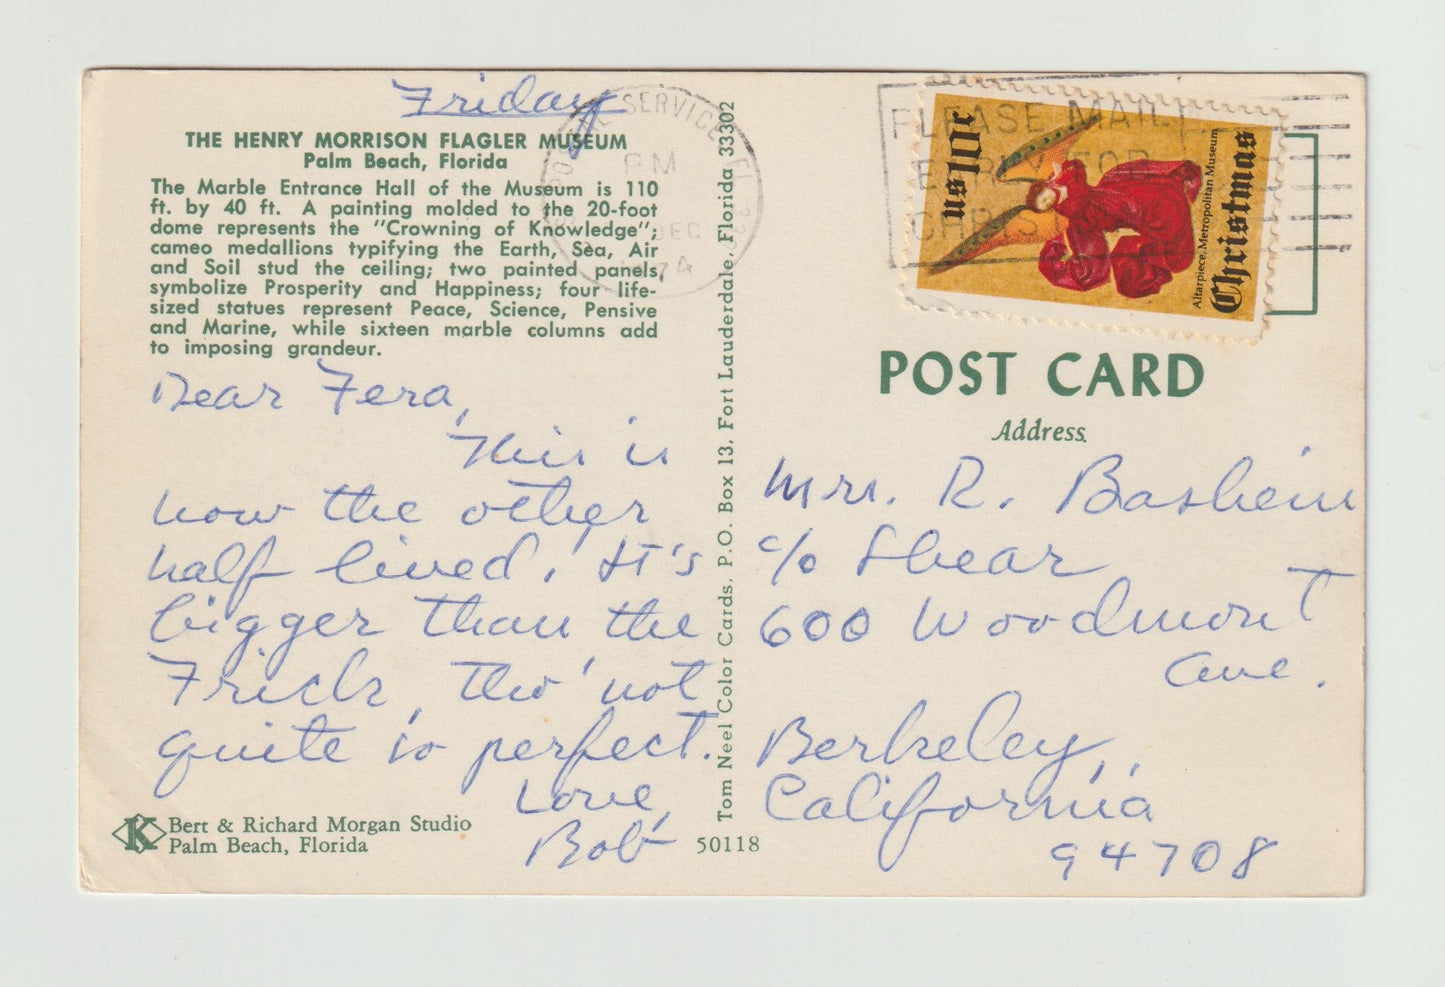 Friday
THE HENRY MORRISON FLAGLER MUSEUM
Palm Beach, Florida
The Marble Entrance Hall of the Museum is 110
ft. by 40 ft. A painting molded to the 20-foot
dome represents the "Crowning of Knowledge";
cameo medallions typifying the Earth, Sea, Air
and Soil stud the ceiling; two painted panels
symbolize Prosperity and Happiness; four life-
sized statues represent Peace, Science, Pensive
and Marine, while sixteen marble columns add
to imposing grandeur.
Dear Fera,
This is
how the other
half lived. It's
bigger than the
Frick, tho' not
quite so perfect.
Love,
Bob
Bert & Richard Morgan Studio
Palm Beach, Florida
K
50118
Tom Neel Color Cards, P.O. Box 13, Fort Lauderdale, Florida 33302
POSTAL SERVICE FL
PM
DEC
1974
PLEASE MAIL
EARLY FOR
CHRISTMAS
US 10c
Christmas
Altarpiece, Metropolitan Museum
POST CARD
Address
Mrs. R. Bashein
c/o Shear
600 Woodmont
Ave.
Berkeley,
California
94708